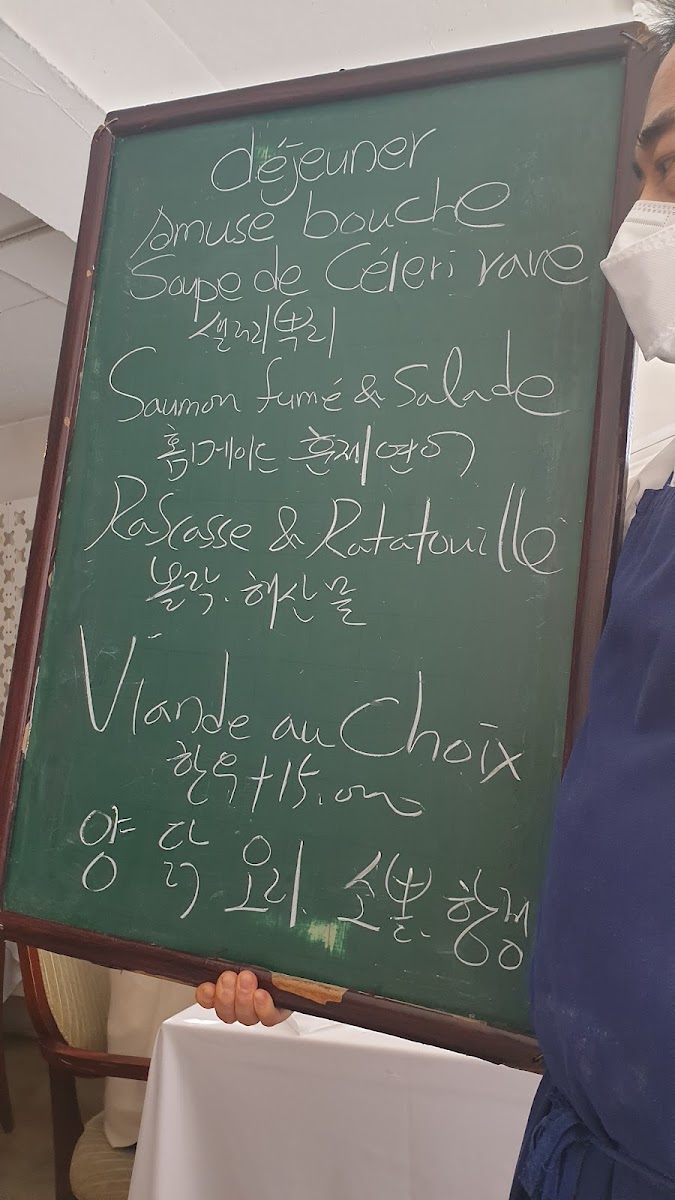 déjeuner
Amuse bouche
Soupe de Céleri rave
샐러리뿌리
Saumon fumé & Salade
홈메이드 훈제연어
Rascasse & Ratatouille
볼락. 해산물
Viande au Choix
한우+15.000
양 닭 오리. 소볼. 항정